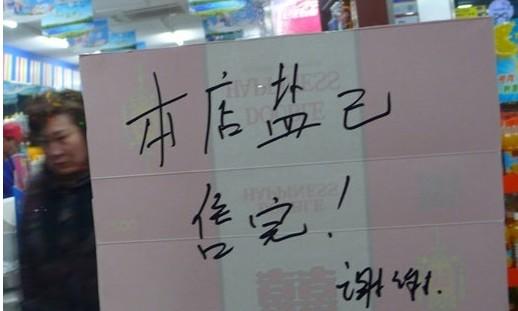 本店盐已
售完!
谢谢.